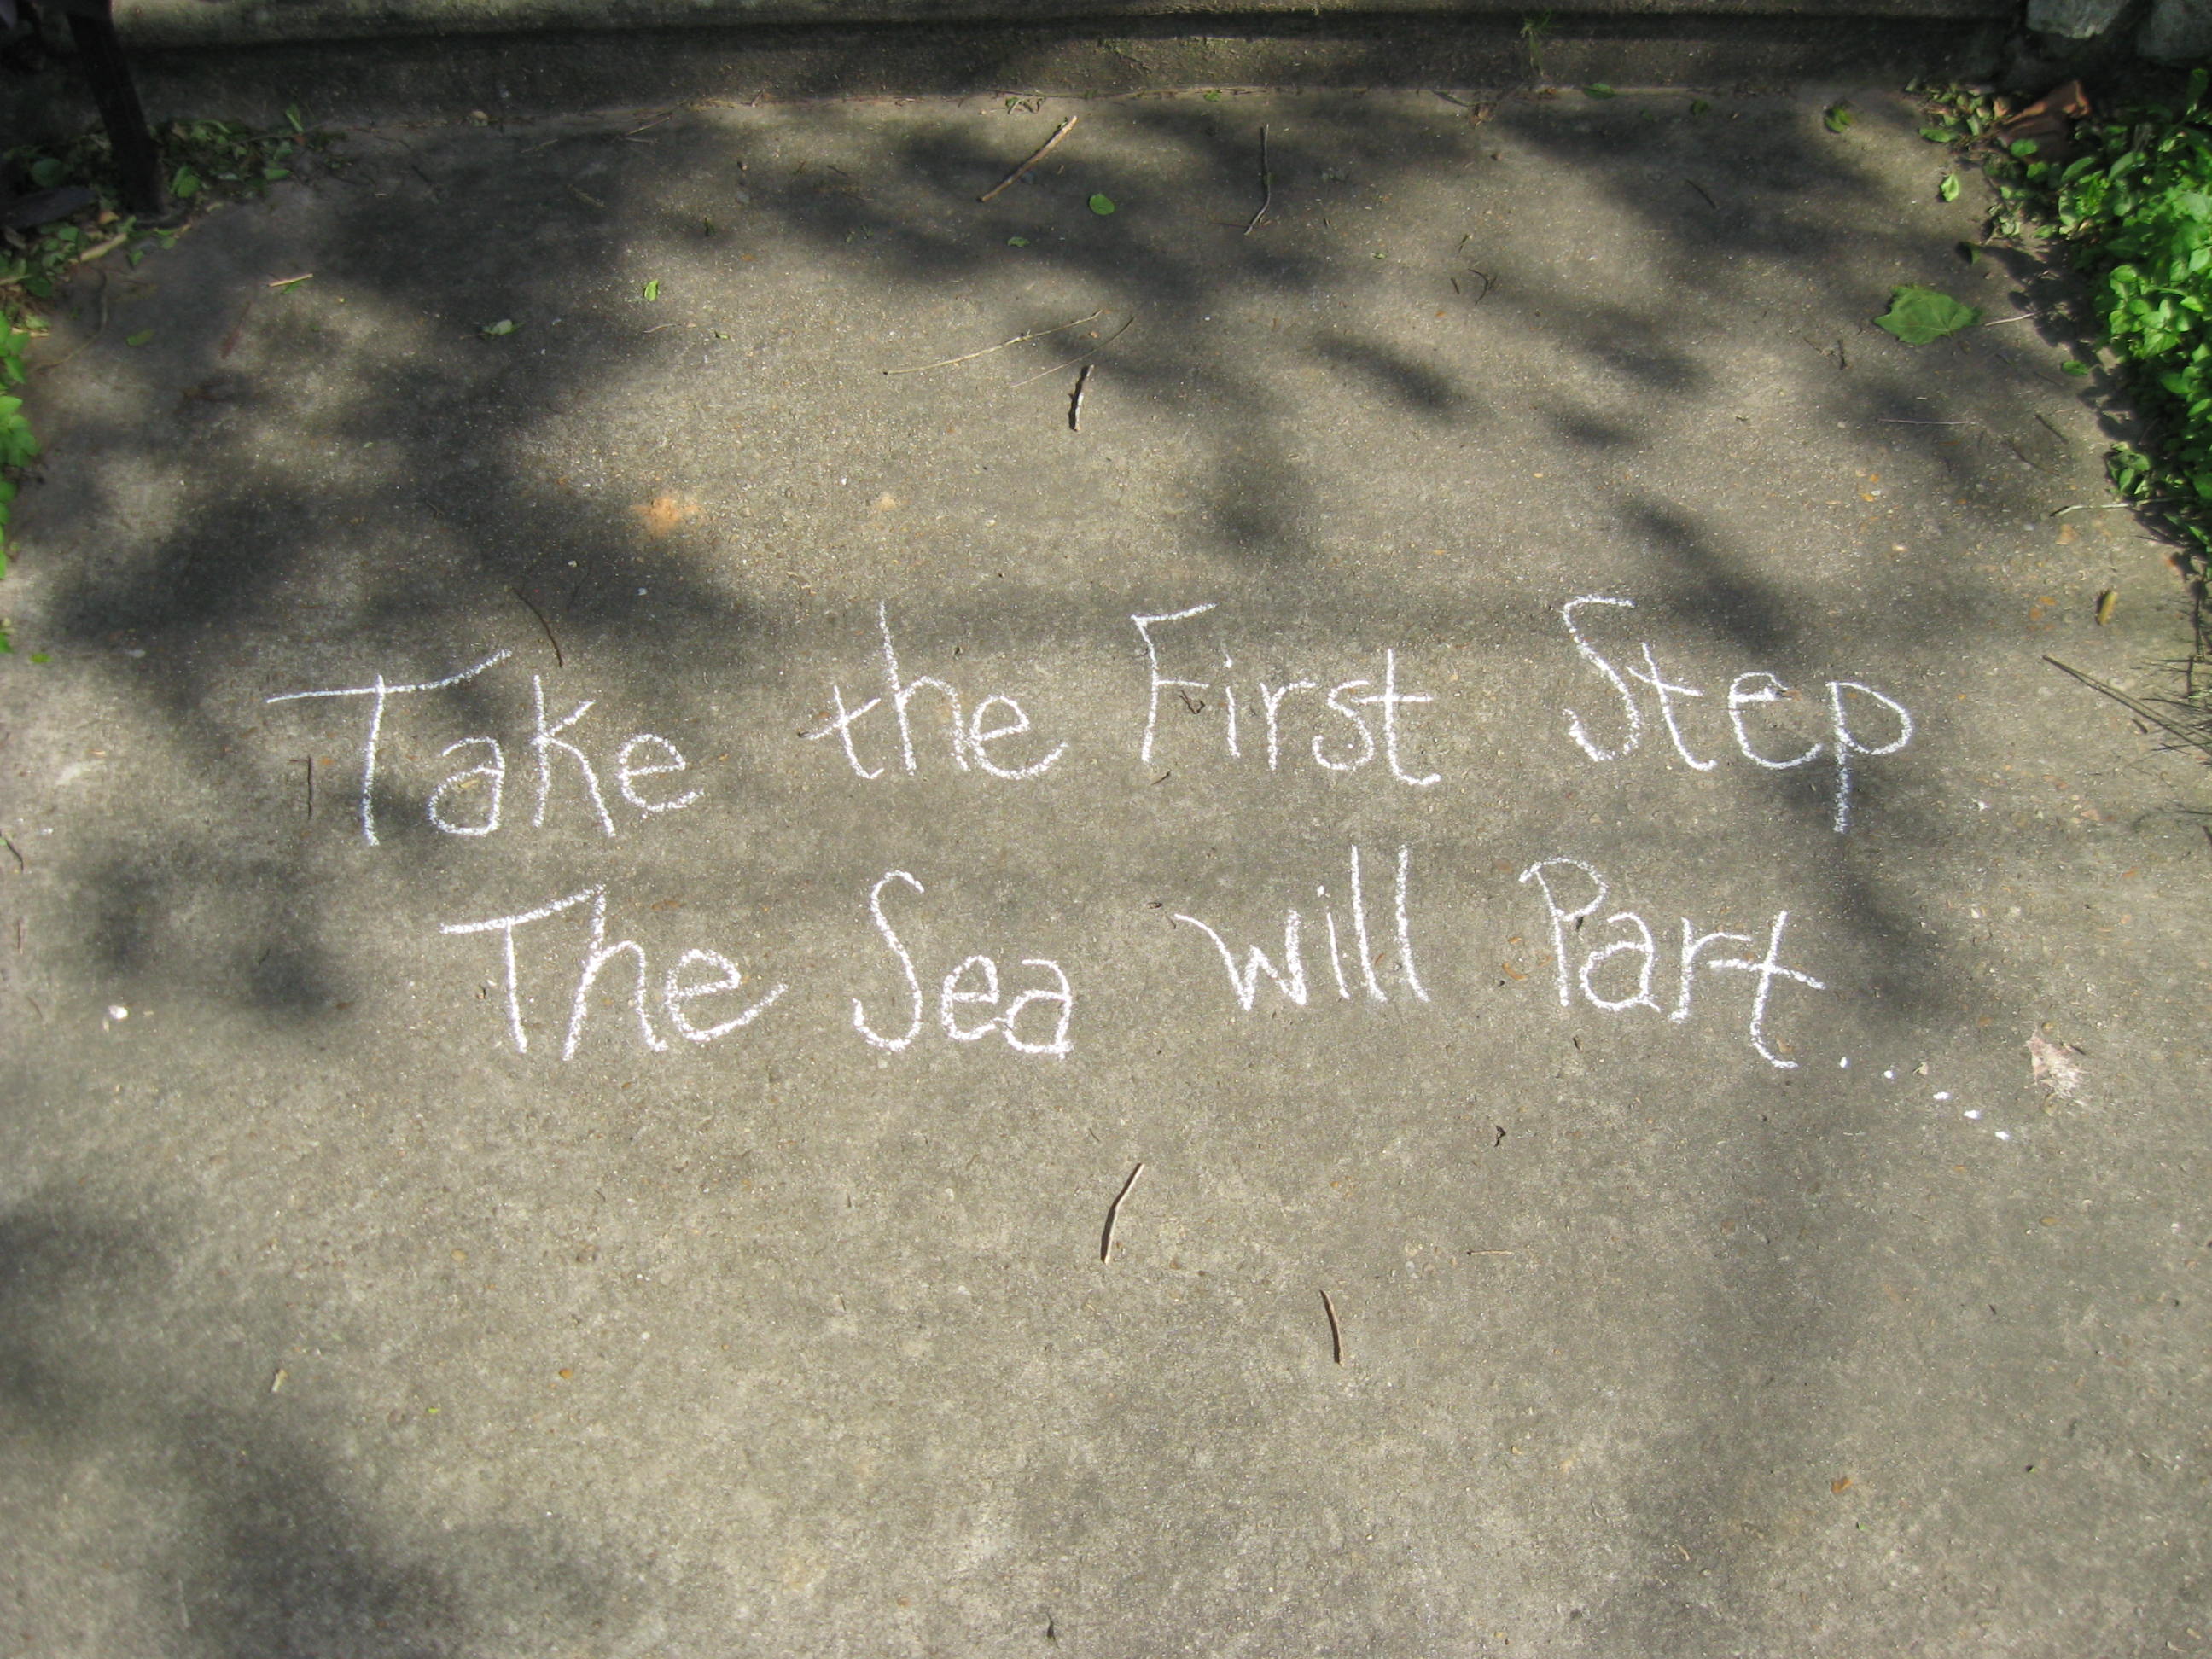 Take the First Step
The Sea will Part.....